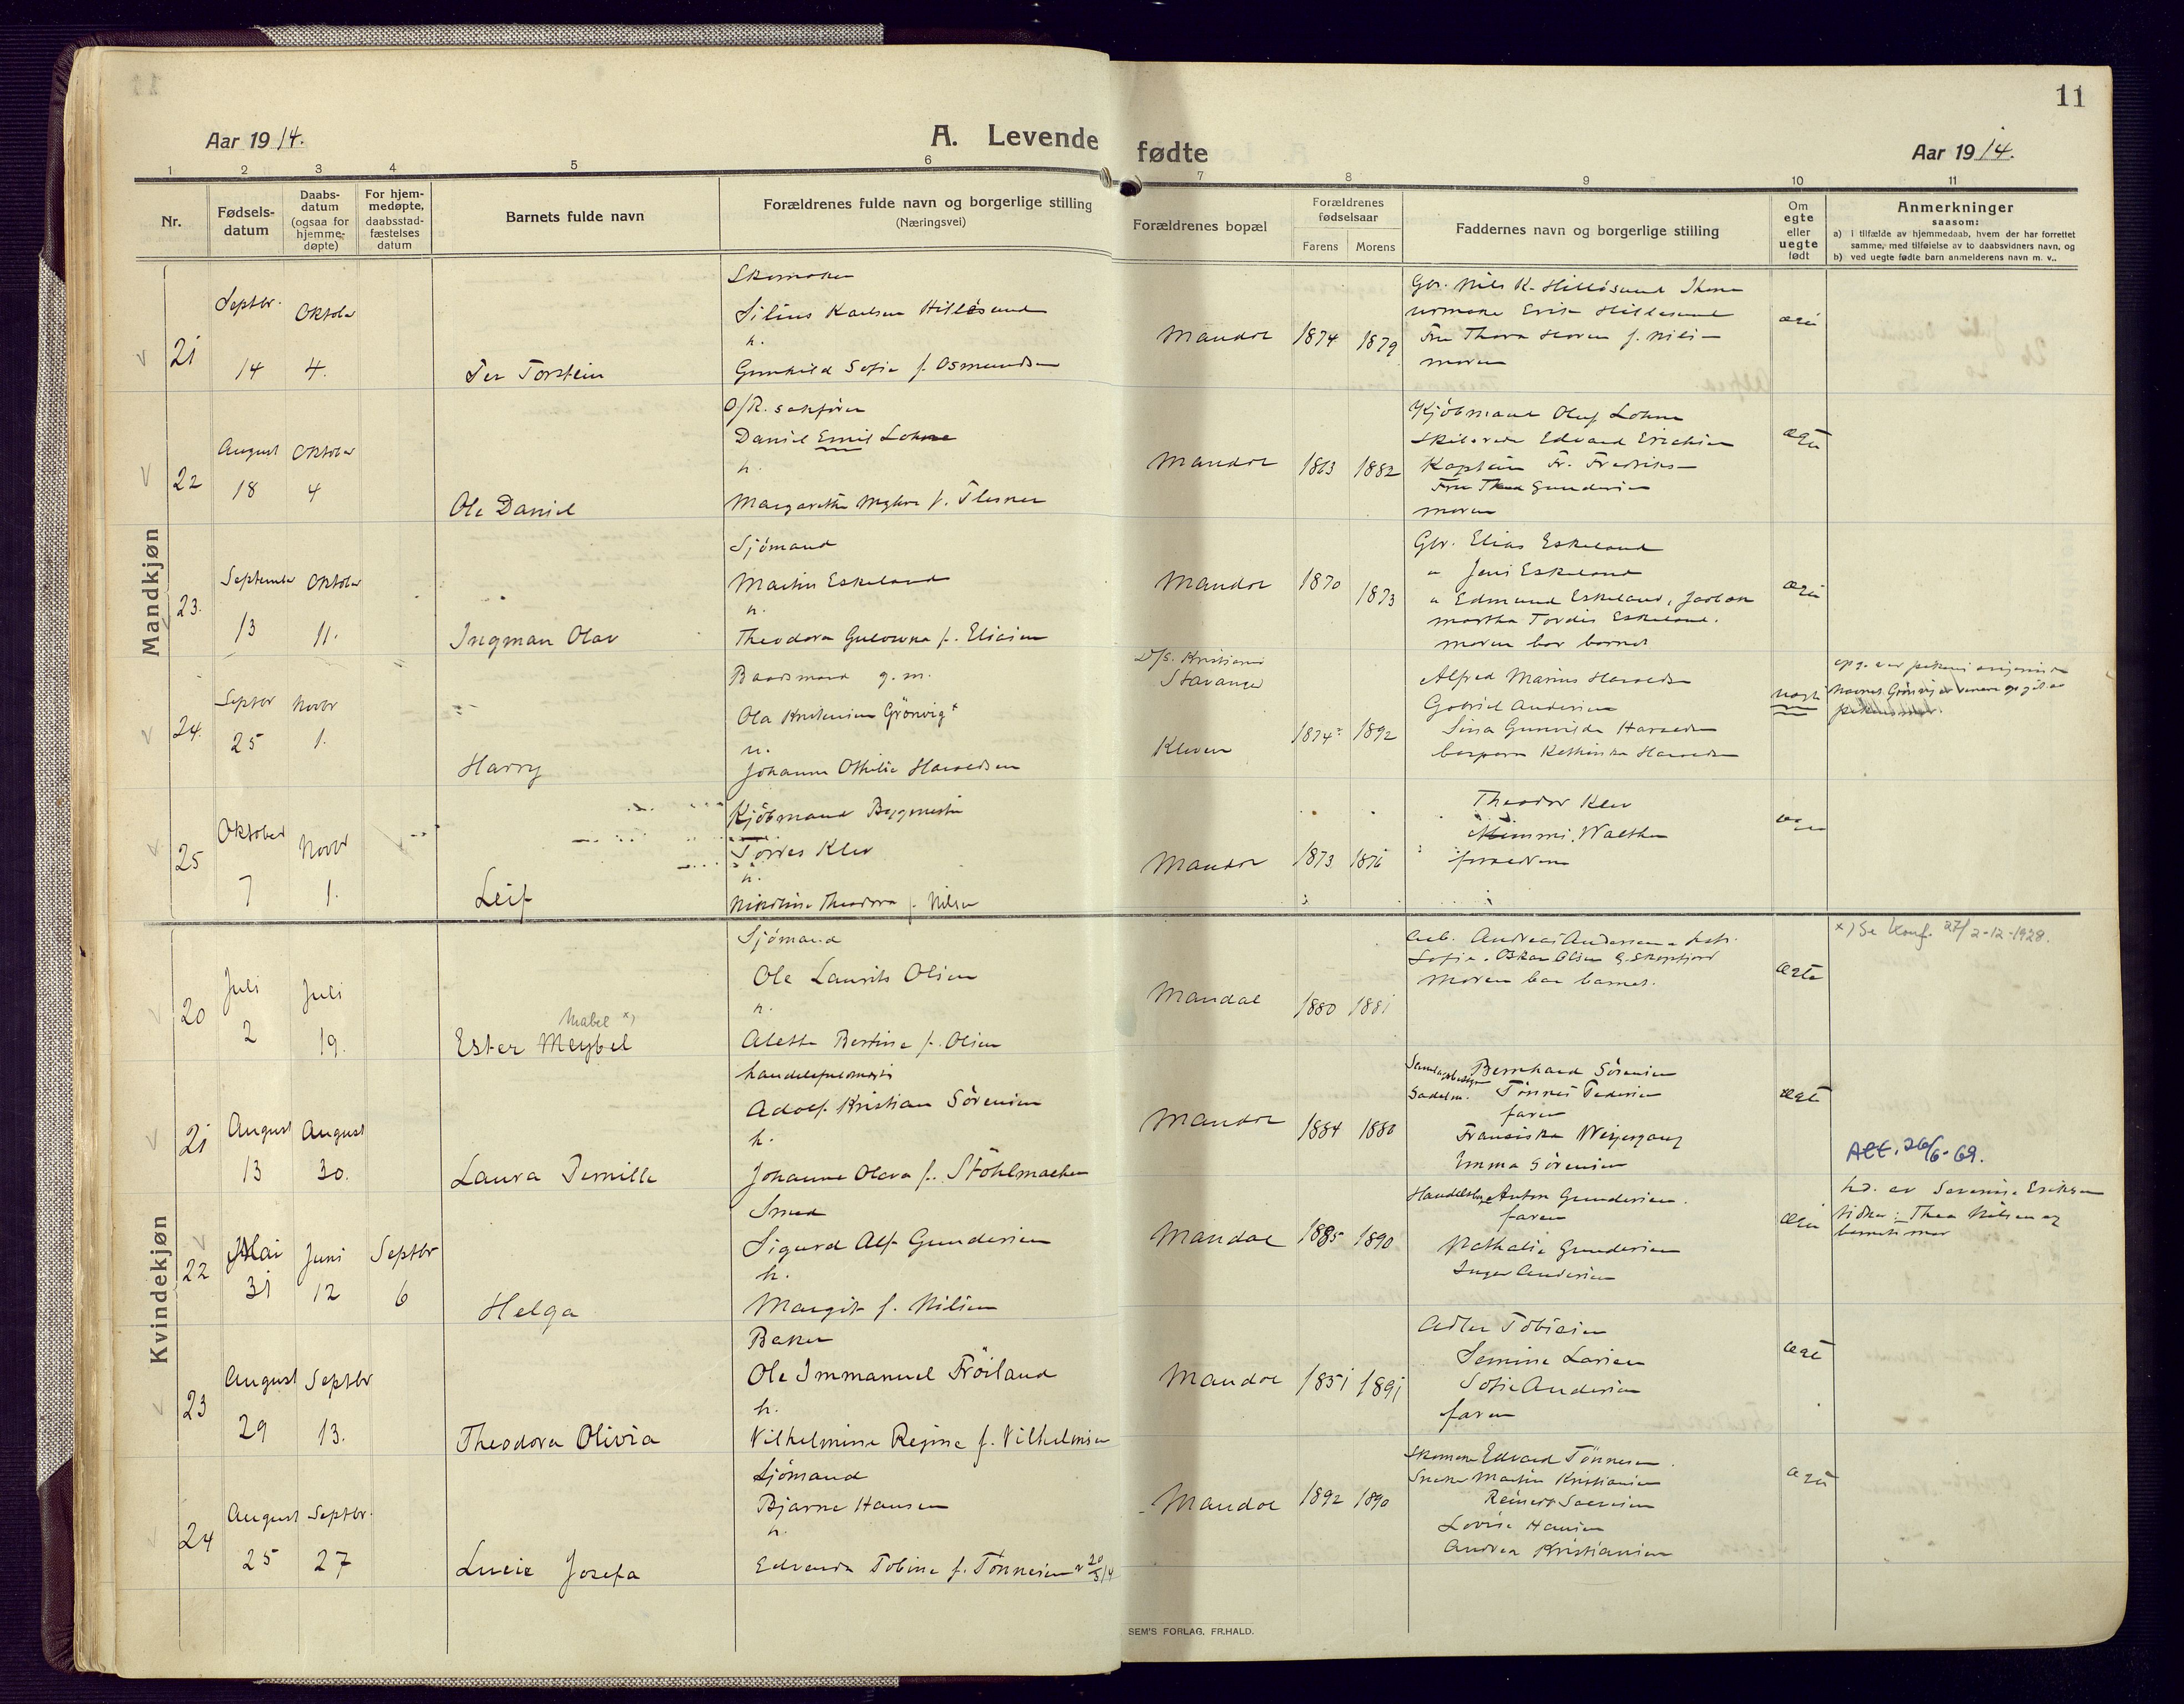 11
Aar 1914.
A. Levende fødte
Aar 1914.
1 2 3 4 5 6 7 8 9 10 11
Nr.
Fødsels-
datum
Daabs-
datum
(ogsaa for
hjemme-
døpte)
For hjem-
medøpte,
daabsstad-
fæstelses
datum
Barnets fulde navn
Forældrenes fulde navn og borgerlige stilling
(Næringsvei)
Forældrenes bopæl
Forældrenes
fødselsaar
Farens Morens
Faddernes navn og borgerlige stilling
Om
egte
eller
uegte
født
Anmerkninger
saasom:
a) i tilfælde av hjemmedaab, hvem der har forrettet
samme, med tilføielse av to daabsvidners navn, og
b) ved uegte fødte barn anmelderens navn m. v..
Mandkjøn
21
Septbr. Oktober
14 4.
Per Torstein
Skomaker
Silius Karlsen Hillesund
h.
Gunhild Sofie f. Osmundsen
Mandal 1874 1879
Gbr. Nils K. Hillesund
Erik Hillesund
Fru Thora
moren
22
August Oktober
18 4
Ole Daniel
O/R. sakfører
Daniel Emil Lohne
h.
Margarethe Myhre f.
Mandal 1863 1882
Kjøbmand Oluf Lohne
Edvard Erichsen
Kaptein Fr. Fredriksen
Fru Thea Gundersen
moren
23.
September Oktober
13 11.
Ingman Olav
Sjømand
Martin Eskeland
h.
Theodora f. Eliasen
Mandal 1870 1873
Gbr. Elias Eskeland
" Jens Eskeland
" Edmund Eskeland,
Martha Tordis Eskeland.
moren bar barnet
24.
Septbr Novbr
25 1.
Harry
Baadsmand g. m.
Ola Kristensen Grönvig x
u.
Johanne Othilie Haraldsen
D/S. Kristiania
Stavanger
Kleven
1874 1892
Alfred Marius Haraldsen
Gabriel Andersen
Haraldsen
Kathinka Haraldsen
uegte
25
Oktober Novbr
7 1.
Leif
Kjöbmand Bygmester
Torres Klev
h.
Nikoline Theodora f. Nilsen
Mandal 1873 1876
Theodor Klev
Mimmi Walther
forældrene
Kvindekjøn
20
Juli Juli
2 19.
Mabel x)
Ester Meybel
Sjömand
Ole Laurits Olsen
h.
Alette Bertine f. Olsen
Mandal 1880 1881
Andreas Andersen
Sofie. Oskar Olsen
Moren bar barnet.
ægte
x) Se Konf. 27/ 2-12-1928.
21
August August
13 30.
Laura Pernille
Adolf Kristian Sörensen
h.
Johanne Olava f. Stöhlmacher
Mandal 1884 1880
Bernhard Sörensen
Sadelm. Tönnes Pedersen
faren
Fransiska Weiergang
Emma Sörensen
ægte
Att. 26/6-69.
22
Mai Juni Septbr
31 12 6
Helga
Smed
Sigurd Alf Gundersen
h.
Margit f. Nilsen
Mandal 1885 1890
Anton Gundersen.
faren
Nathalie Gundersen
Inger Andersen
hd. av Severine Eriksen
Thea Nilsen og
barnets mor
23
August Septbr
29 13.
Theodora Olivia
Baker
Ole Immanuel Fröiland
h.
Vilhelmine Regine f. Vilhelmsen
Mandal 1851 1891
Adler Tobiasen
Semine Larsen
Sofie Andersen
faren
ægte
24
August Septbr.
25 27
Lucie Josefa
Sjömand
Bjarne Hansen
h.
Edvarda Tobine f. Tönnesen
Mandal 1892 1890
Skomaker Edvard Tönnesen
Snekker Martin Kristiansen
Reinert
Lovise Hansen
Andrea Kristiansen
SEM'S FORLAG, FR.HALD.